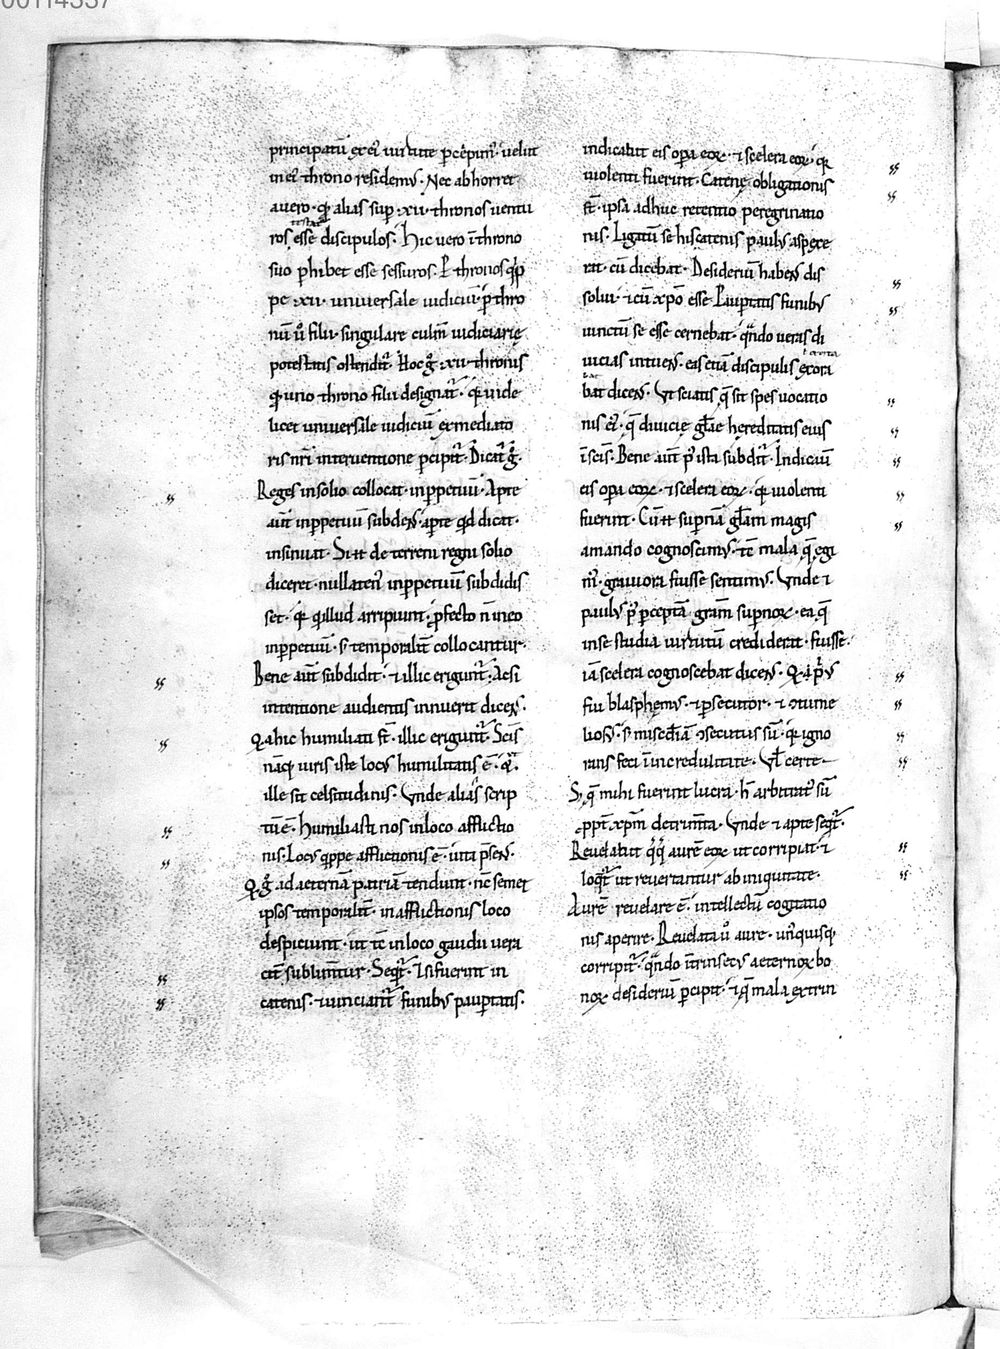 00114337
principatū ex eꝰ uirtute pcepimꝰ. uelut
in eꝰ throno residemꝰ. Nec abhorret
a uero. qđ alias sup .xii. thronos uentu
testat᷑
ros, esse discipulos. hic uero ī throno
suo phibet esse sessuros. P thronos qͥpp
pe .xii. uniuersale iudiciū. p thro
nū u̾ filii. singulare culm̄ iudiciarię
potestatis ostendit᷑. Hoc gͦ .xii. thronis
qđ uno throno filii designat᷑. quia uide
licet uniuersale iudiciū ex mediato
ris nr̄i interuentione pcipit᷑. Dicat᷑ gͦ.
Reges in solio collocat. in ppetuū. Apte
aūt in ppetuū subdens. apte qđ dicat.
insinuat. Si .n. de terreni regni solio
diceret. nullatenꝰ in ppetuū subdidis
set. quia qͥ illud arripiunt. pfecto n̄ in eo
in ppetuū. s; temporalit̄ collocantur.
Bene aūt subdidit. ⁊ illic erigunt᷑. Ac si
intentione audientis innuerit dicens.
Qͥa hic humiliati st̄. illic erigunt᷑. Scīs
nāq; uiris iste locꝰ humilitatis ē. qͥa
ille sit celsitudinis. Vnde aliās scrip
tū ē. humiliasti nos in loco afflictio
nis. Locꝰ qͥppe afflictionis ē. uita psens.
Qͥ gͦ ad aeternā patriā tendunt. nc̄ semet
ipsos temporalit̄. in afflictionis loco
despiciunt. ut tc̄ in loco gaudii uera
cit̄ sublimt̄ur. Seqt᷑. Et si fuerint in
catenis. ⁊ uinciant᷑ funibꝰ paupertatis.
indicabit eis opa eoꝝ. ⁊ scelera eoꝝ. quia
uiolenti fuerint. Catenę obligationis
st̄. ipsa adhuc retentio peregrinatio
nis. Ligatū se his catenis paulꝰ aspexe
rat. cū dicebat. Desideriū habens dis
solui. ⁊ cū xp̄o esse. Paupertatis funibꝰ
uinctū se esse cernebat. qn̄do ueras di
uicias intuens. eas etiā discipulis exora
bat dicens. Vt sciatis q̄ sit spes uocatio
nis eiꝰ. q̄ diuicię glīae hereditatis eius
ī scīs. Bene aūt p᷒ ista subdit᷑. Indicabit
eis opa eoꝝ. ⁊ scelera eoꝝ. quia uiolenti
fuerint. Cū .n. supnā glīam magis
amando cognoscimꝰ. tc̄ mala q̄ egi
mꝰ. grauiora fuisse sentimꝰ. Vnde ⁊
paulꝰ p᷒ pceptā grām supnoꝝ. ea q̄
in se studia uirtutū crediderat. fuisse.
iā scelera cognoscebat dicens. Qͥ pͥꝰ
fui blasphemꝰ. ⁊ psecutor. ⁊ ꝯtume
liosꝰ. s; misedīā ꝯsecutus sū. quia igno
rans feci ī incredulitate. Vl̄ certe
S; q̄ mihi fuerint lucra. h̄ arbitratꝰ sū
ppt̄ xp̄m detrimta. Vnde ⁊ apte seqt᷑.
Reuelabit qͦq; aurē eoꝝ ut corripiat. ⁊
loqt᷑ ut reuertantur ab iniquitate.
Aurē reuelare ē. intellectū cogitatio
nis aperire. Reuelata u̾ aure. unꝰquisq;
corripit᷑. qn̄do ītrinsecꝰ aeternoꝝ bo
noꝝ desideriū pcipit. ⁊ q̄ mala extrin